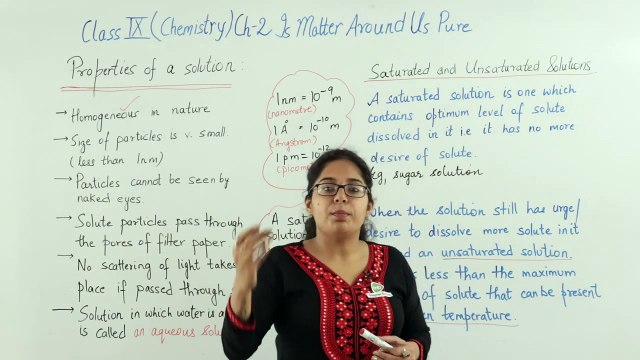 Class IX (Chemistry) Ch-2 Is Matter Around Us Pure
Properties of a solution:
→ Homogeneous in nature
→ Size of particles is v. small.
(less than 1nm)
→ Particles cannot be seen by
naked eyes.
→ Solute particles pass through
the pores of filter paper
→ No scattering of light takes
place if passed through
→ Solution in which water is a
is called an aqueous
1nm = 10⁻⁹ m
(nanometre)
1 Å = 10⁻¹⁰ m
(Angstrom)
1 pm = 10⁻¹²
A
Saturated and Unsaturated Solutions
A saturated solution is one which
contains optimum level of solute
dissolved in it i.e it has no more
desire of solute.
eg, sugar solution
When the solution still has urge/
desire to dissolve more solute in it
an unsaturated solution.
less than the maximum
of solute that can be present
temperature.